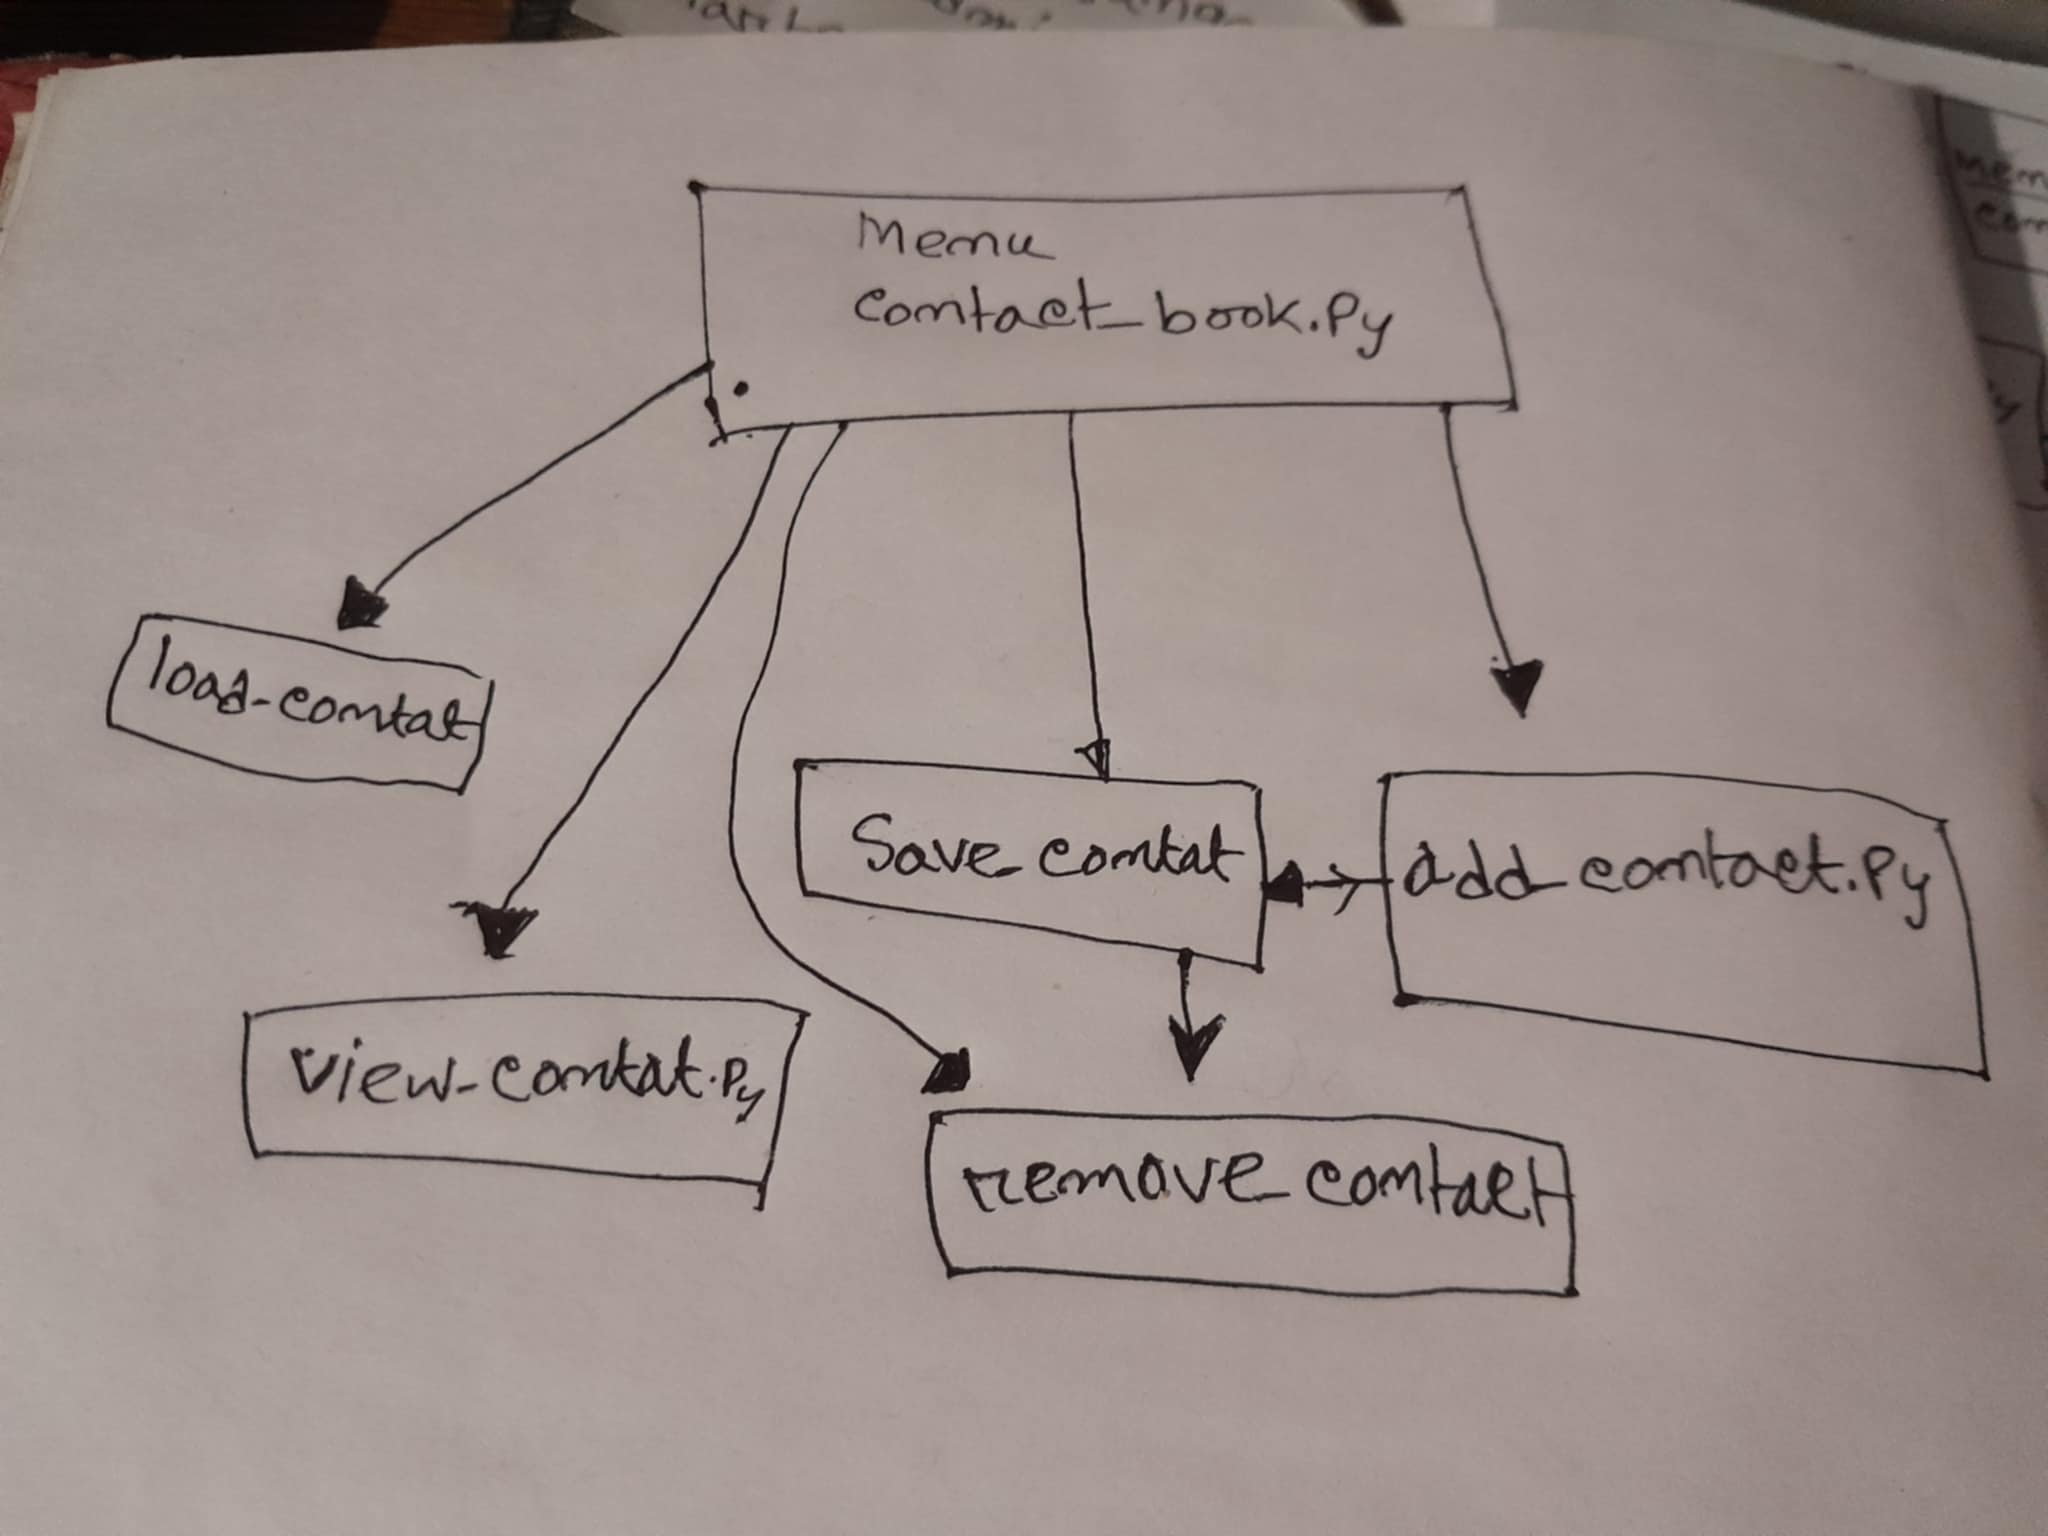 Menu
contact_book.Py
load-contat
Save_contat
add_contact.Py
view-contat.Py
remove_contact